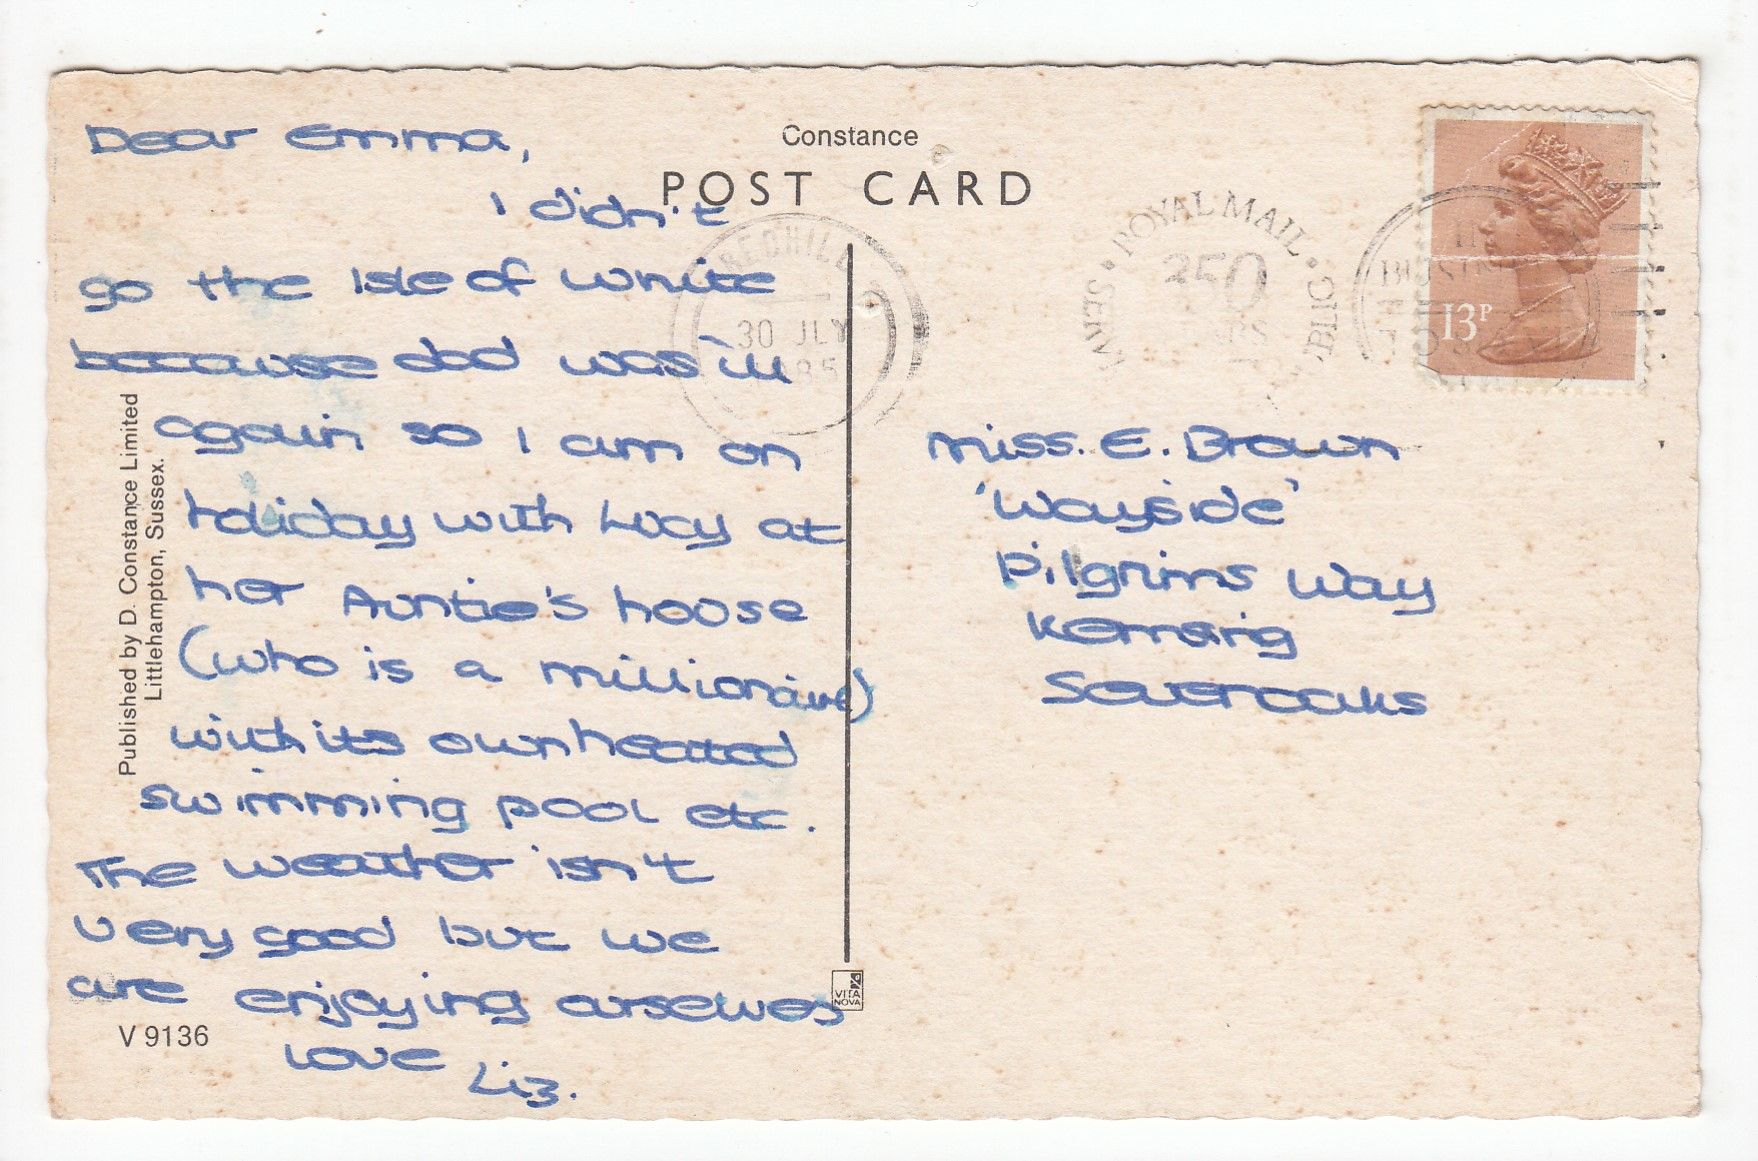 Dear Emma,
I didn't
go the Isle of White
because dad was ill
again so I am on
holiday with Lucy at
her Auntie's house
(who is a millionaire)
with its own heated
swimming pool etc.
The weather isn't
very good but we
are enjoying ourselves
love Liz.
Constance
POST CARD
REDHILL
30 JLY
1985
ROYAL MAIL
350
13P
Miss. E. Brown
'Wayside'
Pilgrims Way
Kemsing
Sevenoaks
Published by D. Constance Limited
Littlehampton, Sussex.
VITA
NOVA
V 9136